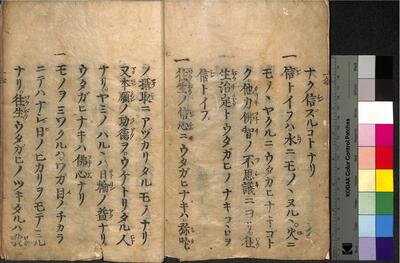 ナク信ズルコトナリ
一 信トイフハ水ニモノハヌル、火ニ
モノハヤクルニウタガヒナキコト
ク他力佛智ノ不思議ニヨツテ往
生治定トウタガヒノナキコヽロヲ
信トイフ
一 往生ノ信心ニウタガヒナキハ弥陀
ノ攝取ニアヅカリタルモノナリ
又本願ノ功徳ヲウケトリタル人
ナリヤミノハルヽハ日輪ノ益ナリ
ウタガヒナキハ佛心ナリ
一 モノヲミワクルハワガ目ノチカラ
ニテハナシ日ノヒカリヲモテミル
ナリ往生ウタガヒノツキタルハ
KODAK Color Control Patches